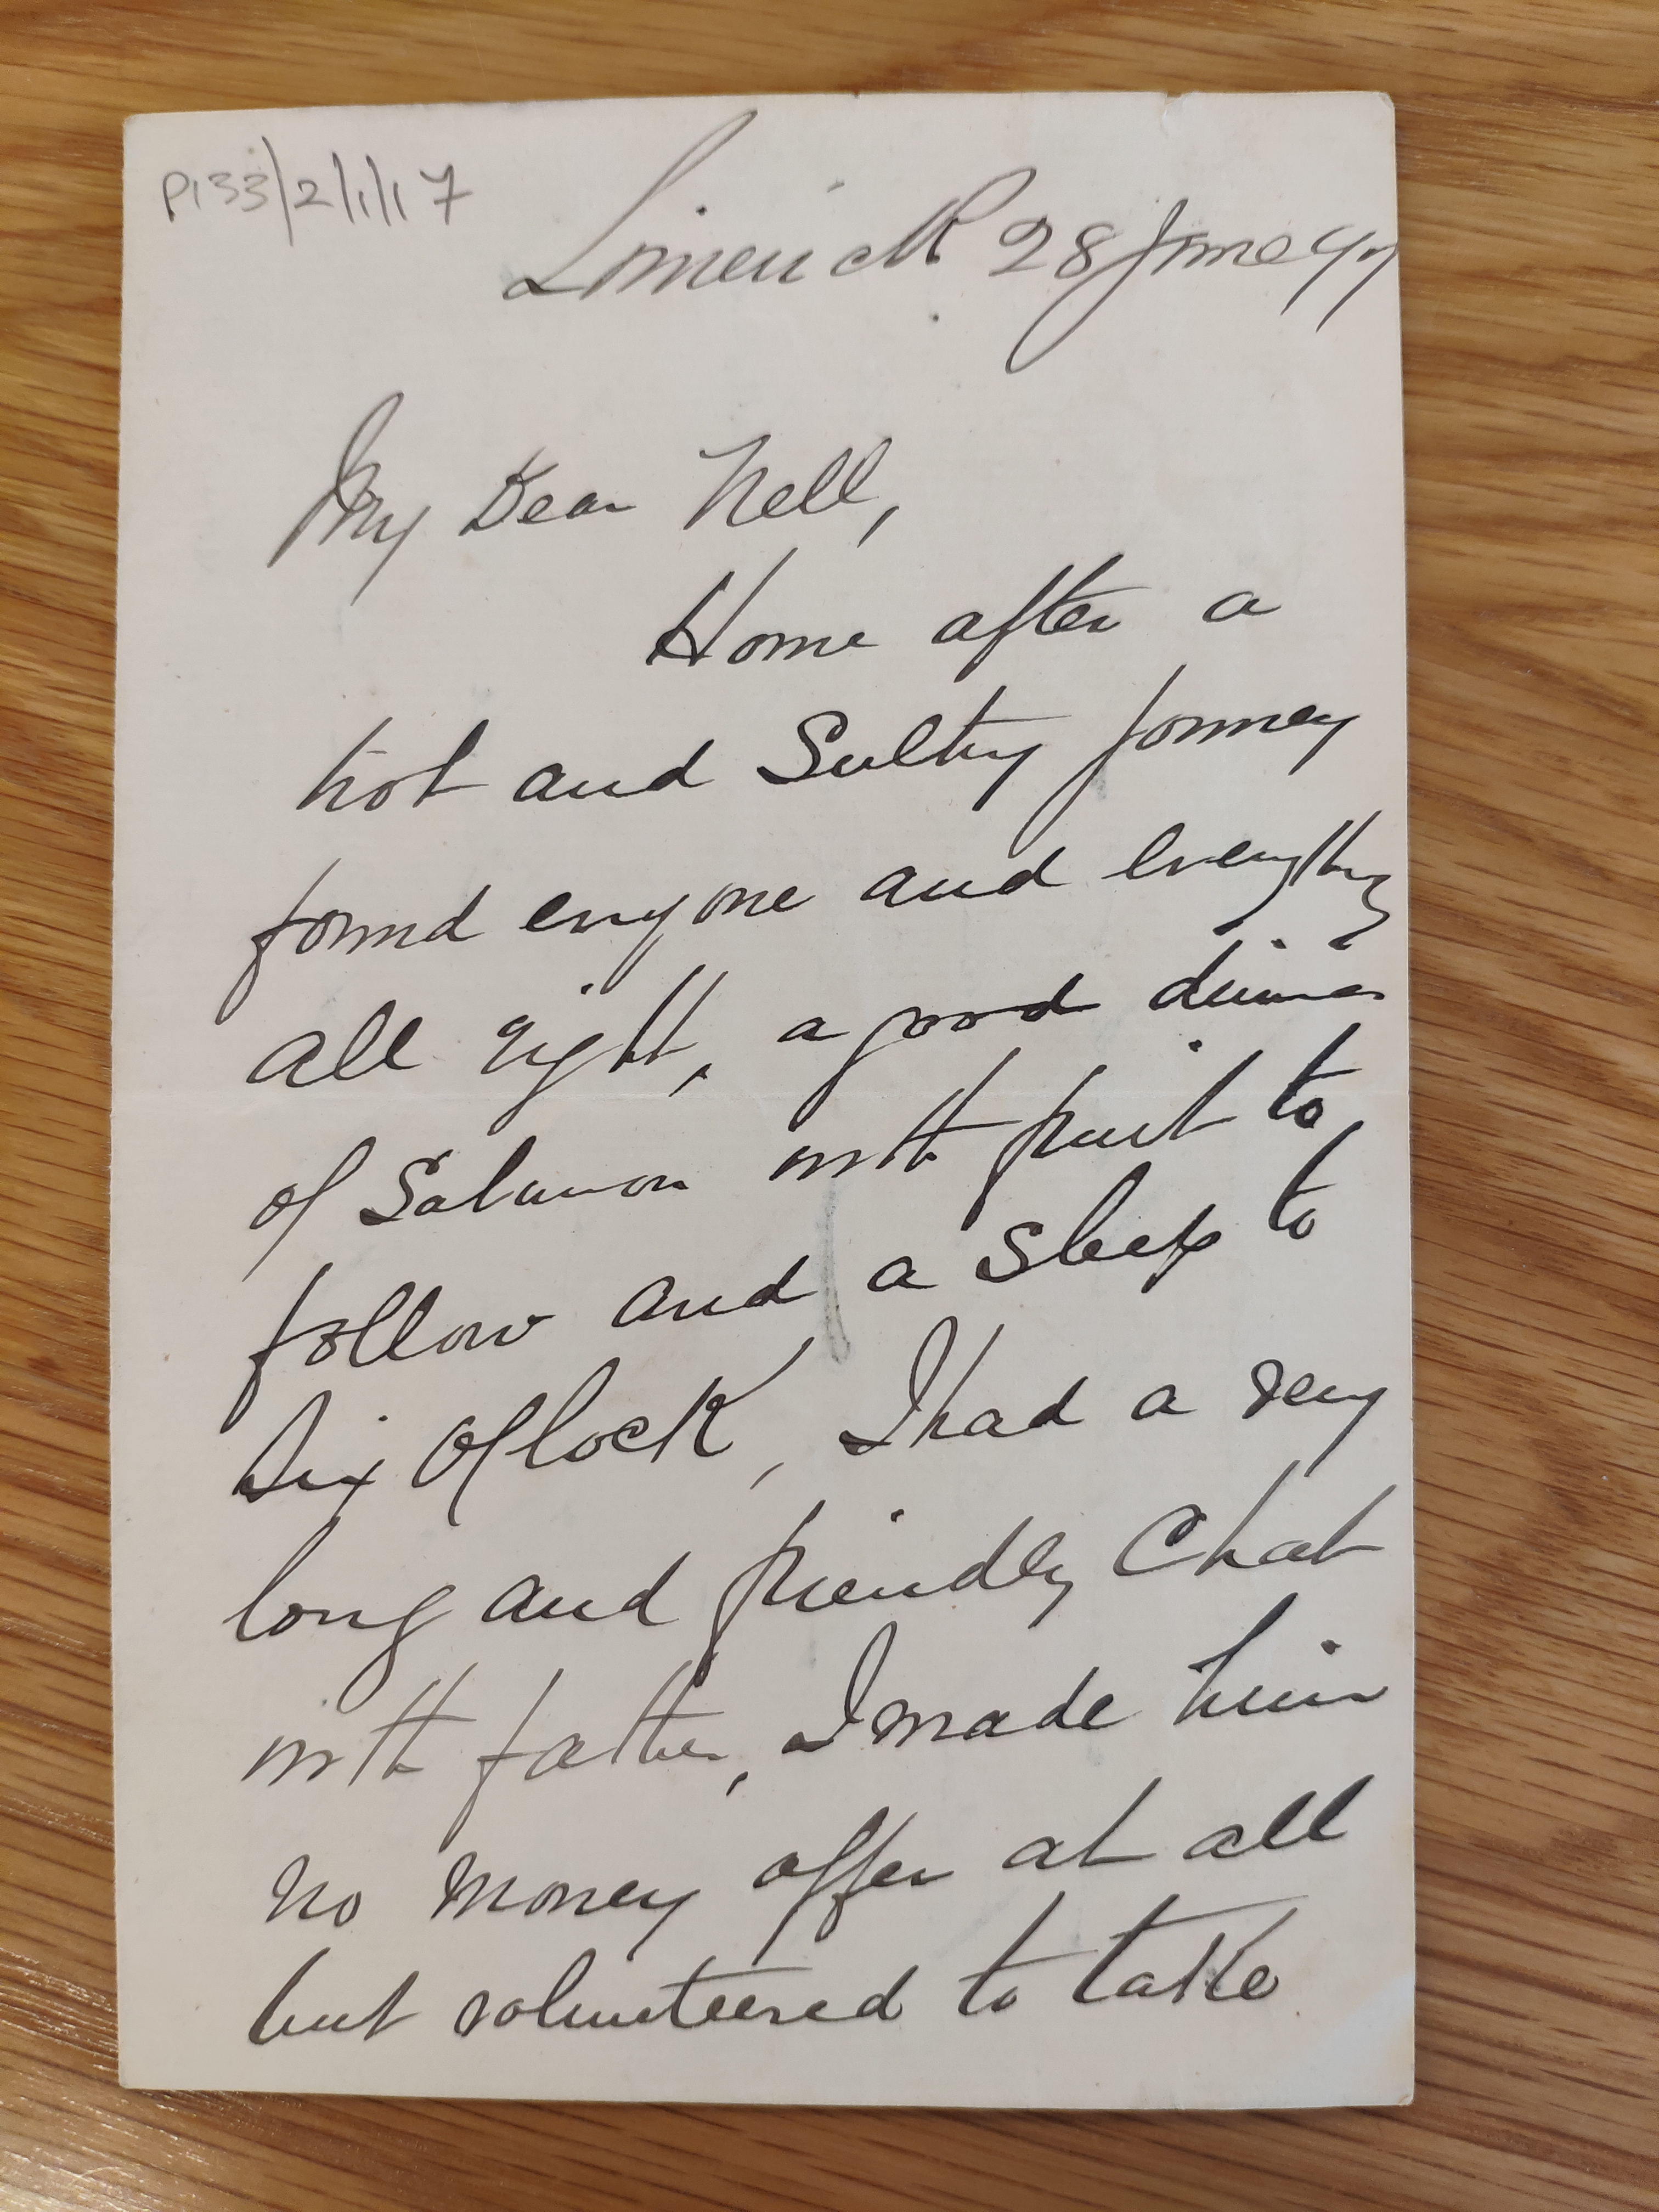 P133/2/1/17
Limerick 28 June 97
My Dear Nell,
Home after a
hot and Sultry journey
found everyone and everything
all right, a good dinner
of Salmon with fruit to
follow and a Sleep to
Six O'Clock, I had a very
long and friendly Chat
with father, I made him
no money offer at all
but volunteered to take